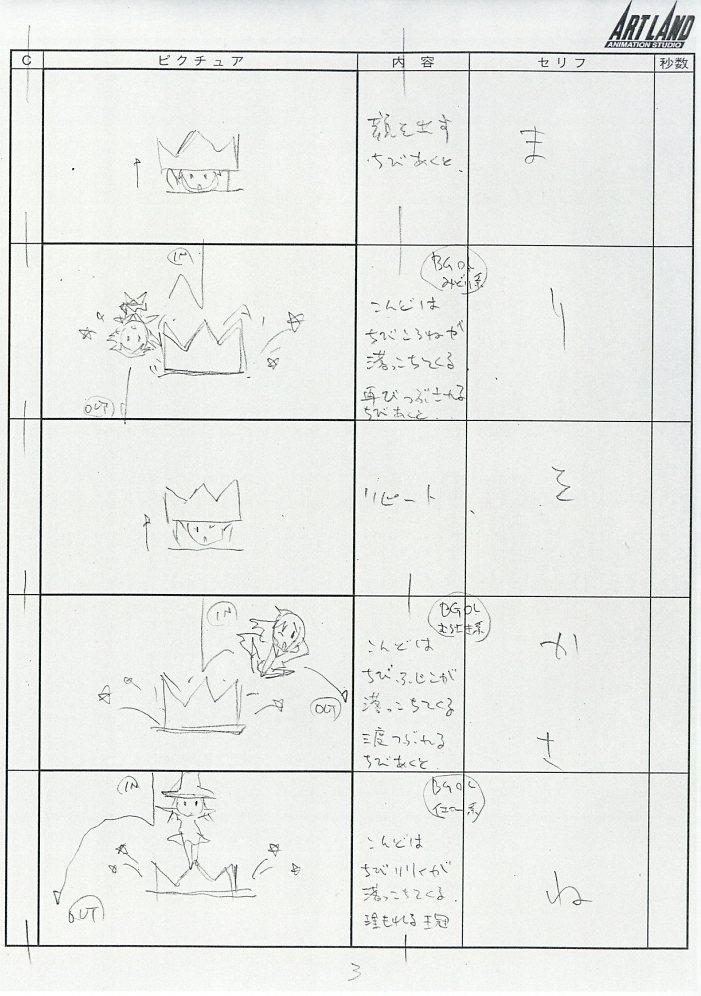 ARTLAND
ANIMATION STUDIO
C ピクチュア 内容 セリフ 秒数
顔を出す
ちびあくと、
ま
IN
OUT
BG OL
みどり系
こんどは
ちびころねが
落っこちてくる
再びつぶされる
ちびあくと、
り
リピート
そ
IN
OUT
BG OL
むらさき系
こんどは
ちびふじこが
落っこちてくる
つぶれる
ちびあくと、
か
さ
IN
OUT
BG OL
イエロー系
こんどは
ちびリリィが
落っこちてくる
埋もれる王冠
ね
3